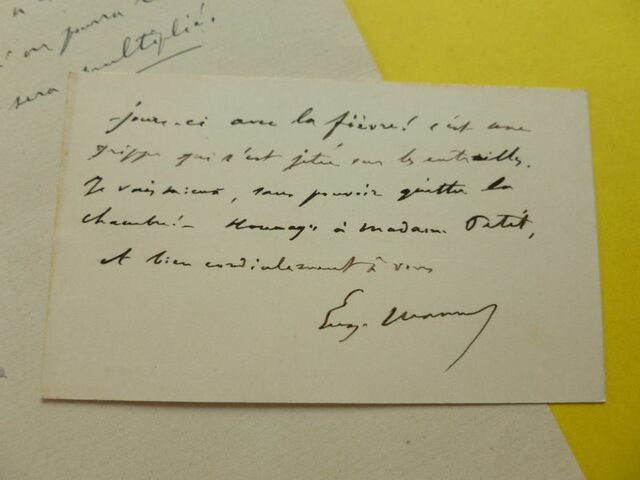 à
où on pourra
sera multiplié!
jours-ci avec la fièvre! c'est une
grippe qui s'est jetée sur les entrailles.
Je vais mieux, sans pouvoir quitter la
chambre! - Hommages à Madame Petit,
et bien cordialement à vous
Eug. Manuel